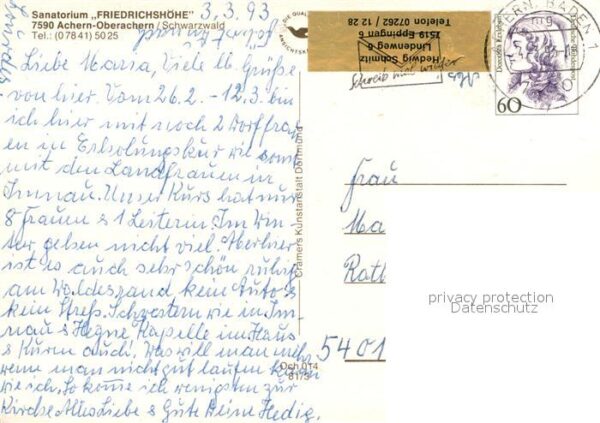 Sanatorium „FRIEDRICHSHÖHE"
7590 Achern-Oberachern / Schwarzwald
Tel.: (07841) 5025
3.3.93
Liebe Maria, Viele lb. Grüße
von hier. Vom 26.2. - 12.3. bin
ich hier mit noch 2 Dorffrau
en in Erholungskur wie sonst
mit den Landfrauen in
Imnau. Unser Kurs hat nur
8 Frauen & 1 Leiterin. Im Win-
ter gehen nicht viel. Aber hier
ist es auch sehr schön ruhig
am Waldesrand kein Auto &
kein Streß. Schwestern wie in Im-
nau & Hegne Kapelle im Haus
& Kurm auch! Was will man mehr
wenn man nicht gut laufen kann
wie ich. So komme ich wenigsten zur
Kirche Alles Liebe & Gute Deine Hedig.
Hedwig Schmitz
Lindenweg 6
7519 Eppingen 6
Telefon 07262 / 12 28
Schreib mal wieder
ACHERN, BADEN 1
Dorothea Erxleben
60
Cramers Kunstanstalt Dortmund
Och 014
81/3
Frau
Ma
Rath
5401
privacy protection
Datenschutz